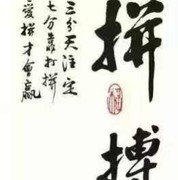 拼搏
三分天注定
七分靠打拼
爱拼才會赢